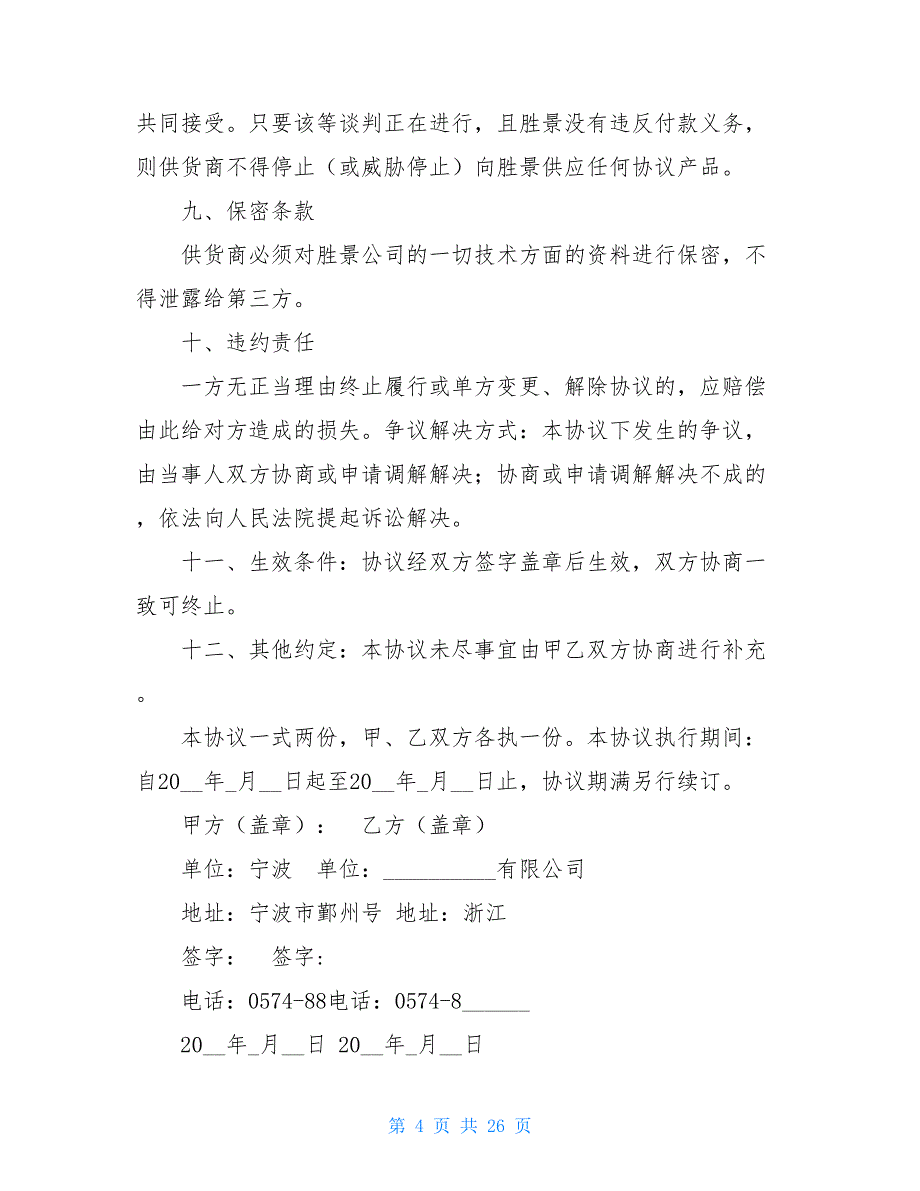 共同接受。只要该等谈判正在进行，且胜景没有违反付款义务，
则供货商不得停止（或威胁停止）向胜景供应任何协议产品。
九、保密条款
供货商必须对胜景公司的一切技术方面的资料进行保密，不
得泄露给第三方。
十、违约责任
一方无正当理由终止履行或单方变更、解除协议的，应赔偿
由此给对方造成的损失。争议解决方式：本协议下发生的争议，
由当事人双方协商或申请调解解决；协商或申请调解解决不成的
，依法向人民法院提起诉讼解决。
十一、生效条件：协议经双方签字盖章后生效，双方协商一
致可终止。
十二、其他约定：本协议未尽事宜由甲乙双方协商进行补充
。
本协议一式两份，甲、乙双方各执一份。本协议执行期间：
自20__年_月__日起至20__年_月__日止，协议期满另行续订。
甲方（盖章）：　乙方（盖章）
单位：宁波　单位：__________有限公司
地址：宁波市鄞州号 地址：浙江
签字：　签字:
电话：0574-88电话：0574-8______
20__年_月__日 20__年_月__日
第 4 页 共 26 页